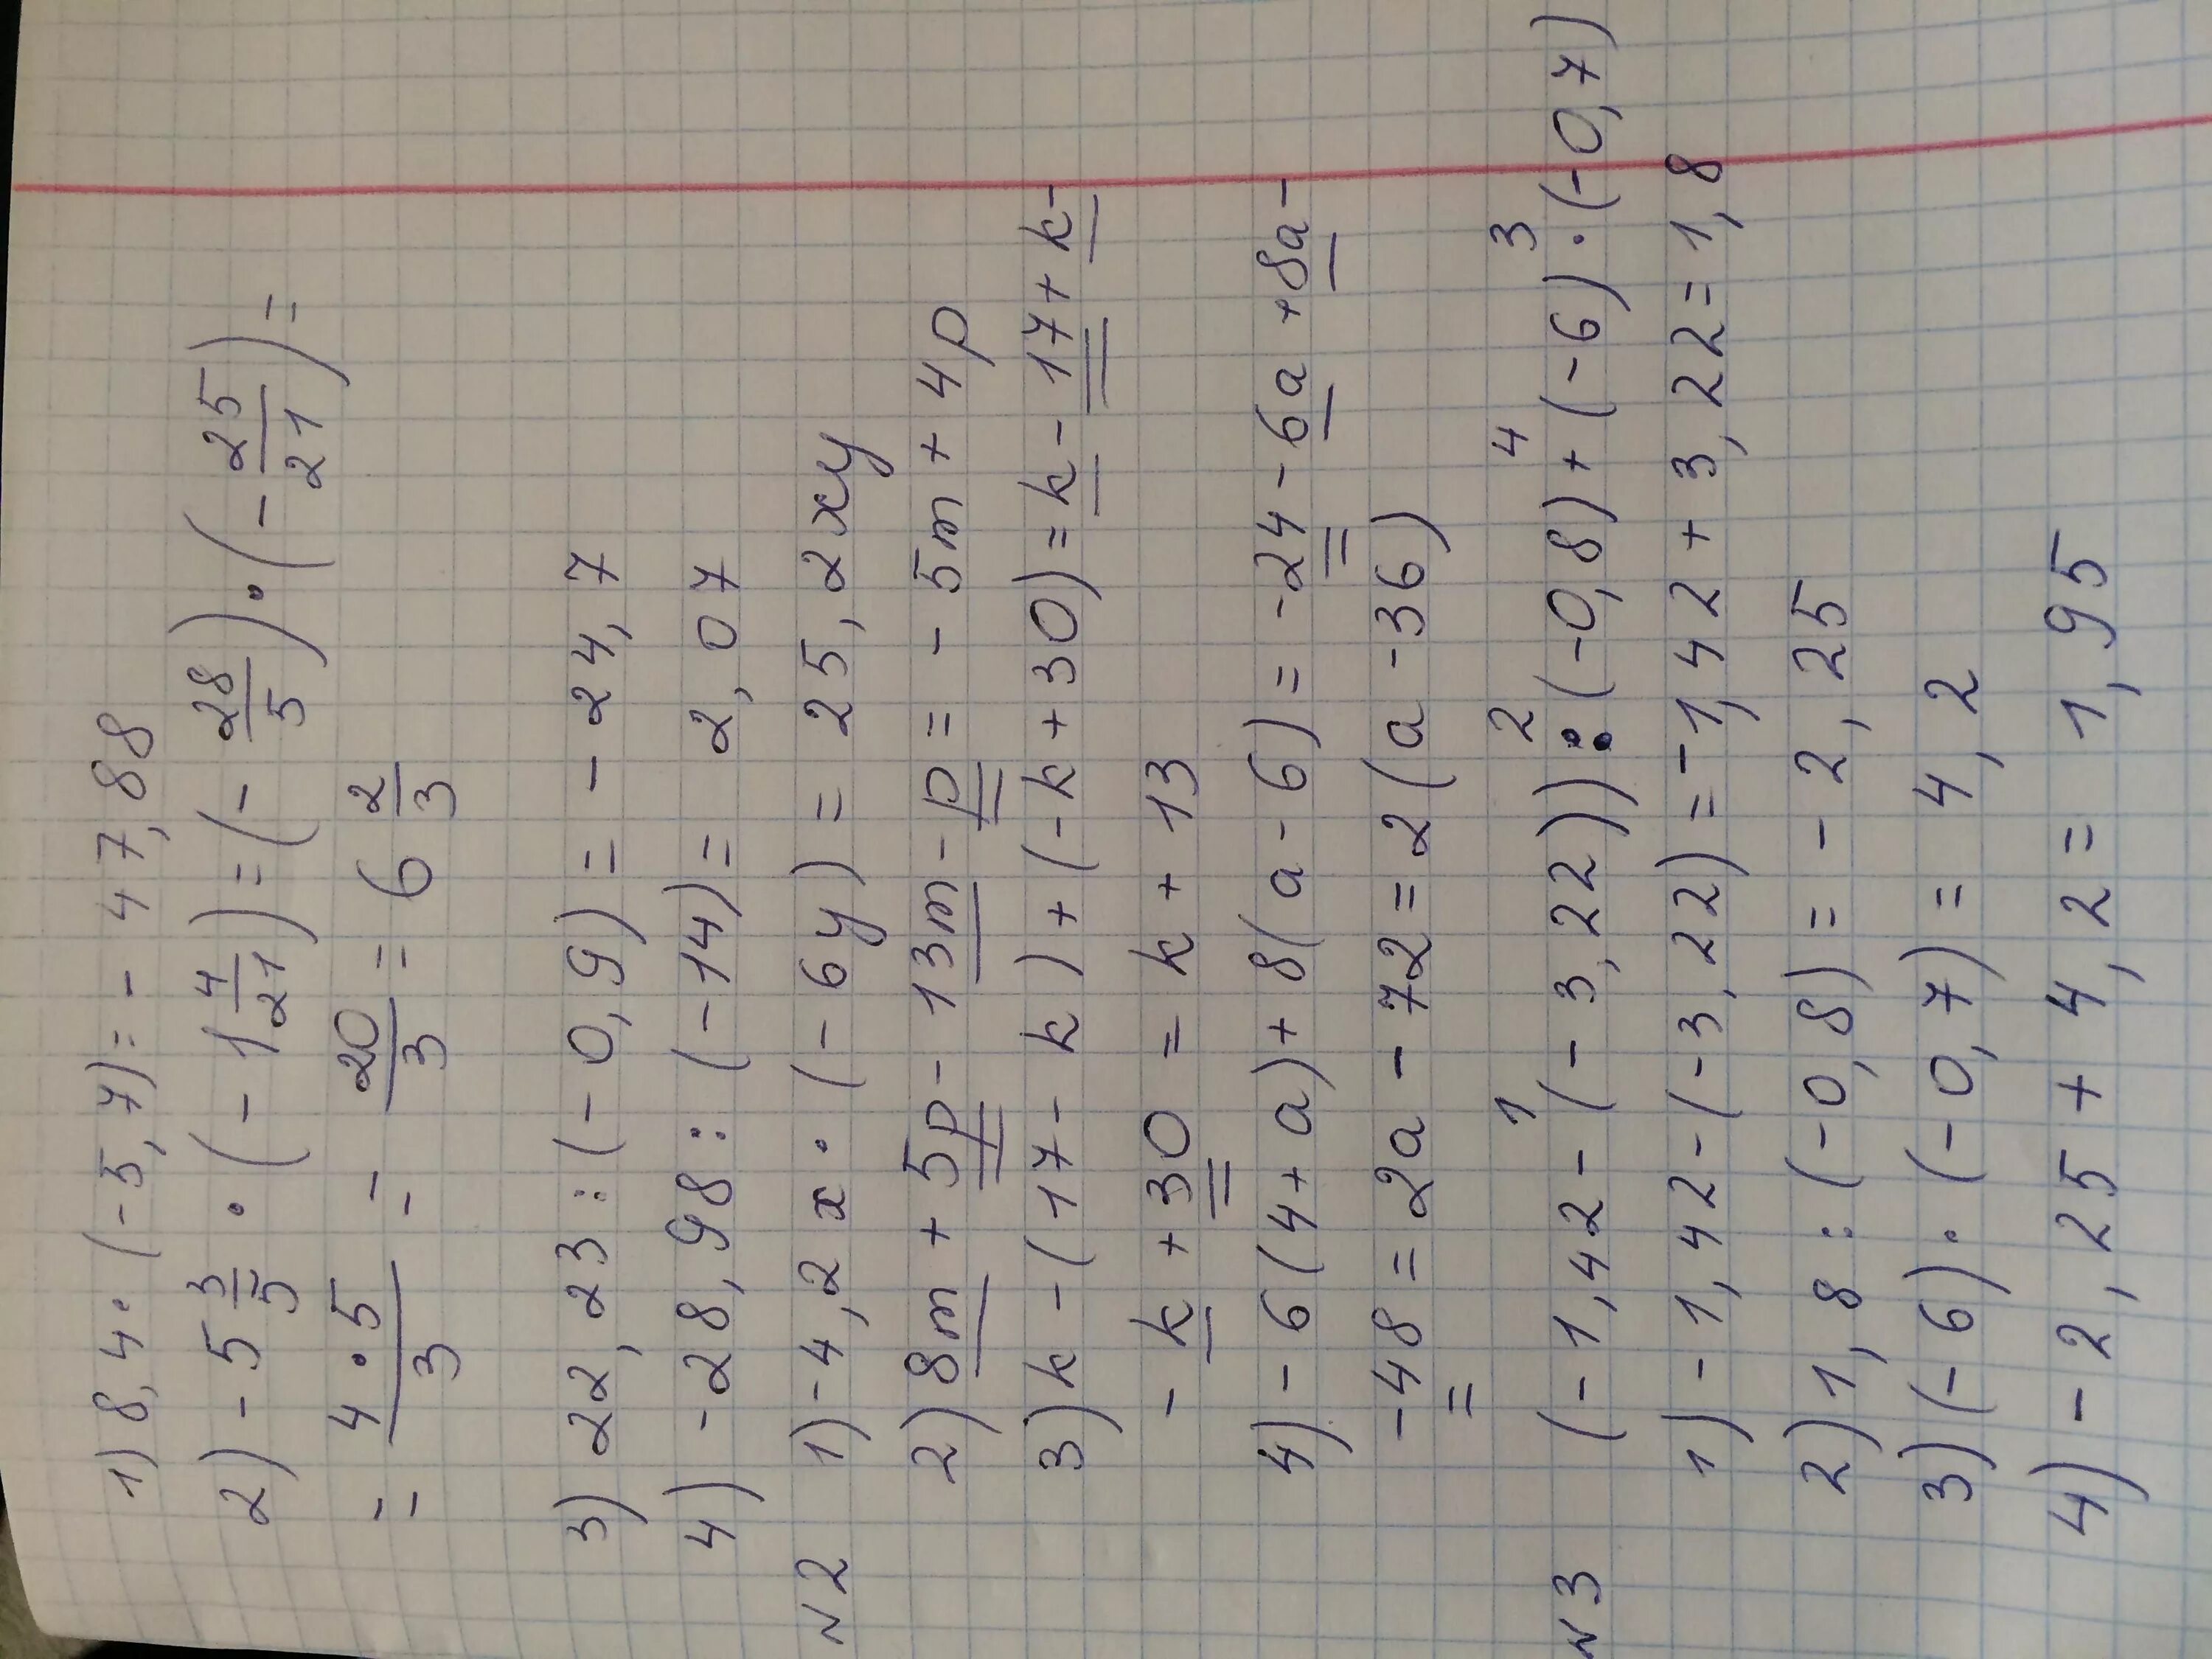 1) 8,4 · (-5,7) = - 47,88
2) - 5 3/5 · (- 1 4/21) = (- 28/5) · (- 25/21) =
= 4·5/3 = 20/3 = 6 2/3
3) 22,23 : (- 0,9) = - 24,7
4) -28,98 : (-14) = 2,07
N2 1) -4,2 x · (- 6y) = 25,2xy
2) 8m + 5p - 13m - p = - 5m + 4p
3) k - (17 - k) + (-k + 30) = k - 17 + k -
- k + 30 = k + 13
4) - 6 (4 + a) + 8(a - 6) = -24 - 6a + 8a -
- 48 = 2a - 72 = 2(a - 36)
1 2 4 3
N3 (- 1,42 - (- 3,22)) : (-0,8) + (-6) · (-0,7)
1) - 1,42 - (-3,22) = -1,42 + 3,22 = 1,8
2) 1,8 : (-0,8) = - 2,25
3) (-6) · (-0,7) = 4,2
4) - 2,25 + 4,2 = 1,95